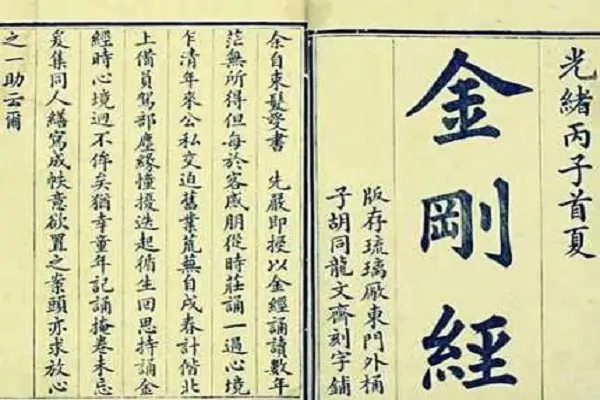 光緒丙子首夏
金剛經
版存琉璃厰東門外桶
子胡同龍文齋刻字鋪
余自束髮學書 先嚴即授以金經誦讀數年
茫無所得但每於客感朋從時莊誦一過心境
乍清年來公私交迫舊業荒蕪自戊春計偕北
上備員駕部塵緣憧擾迭起循生回思持誦金
經時心境迥不侔矣猶幸童年記誦掩卷未忘
爰集同人繕寫成帙意欲置之案頭亦求放心
之一助云爾